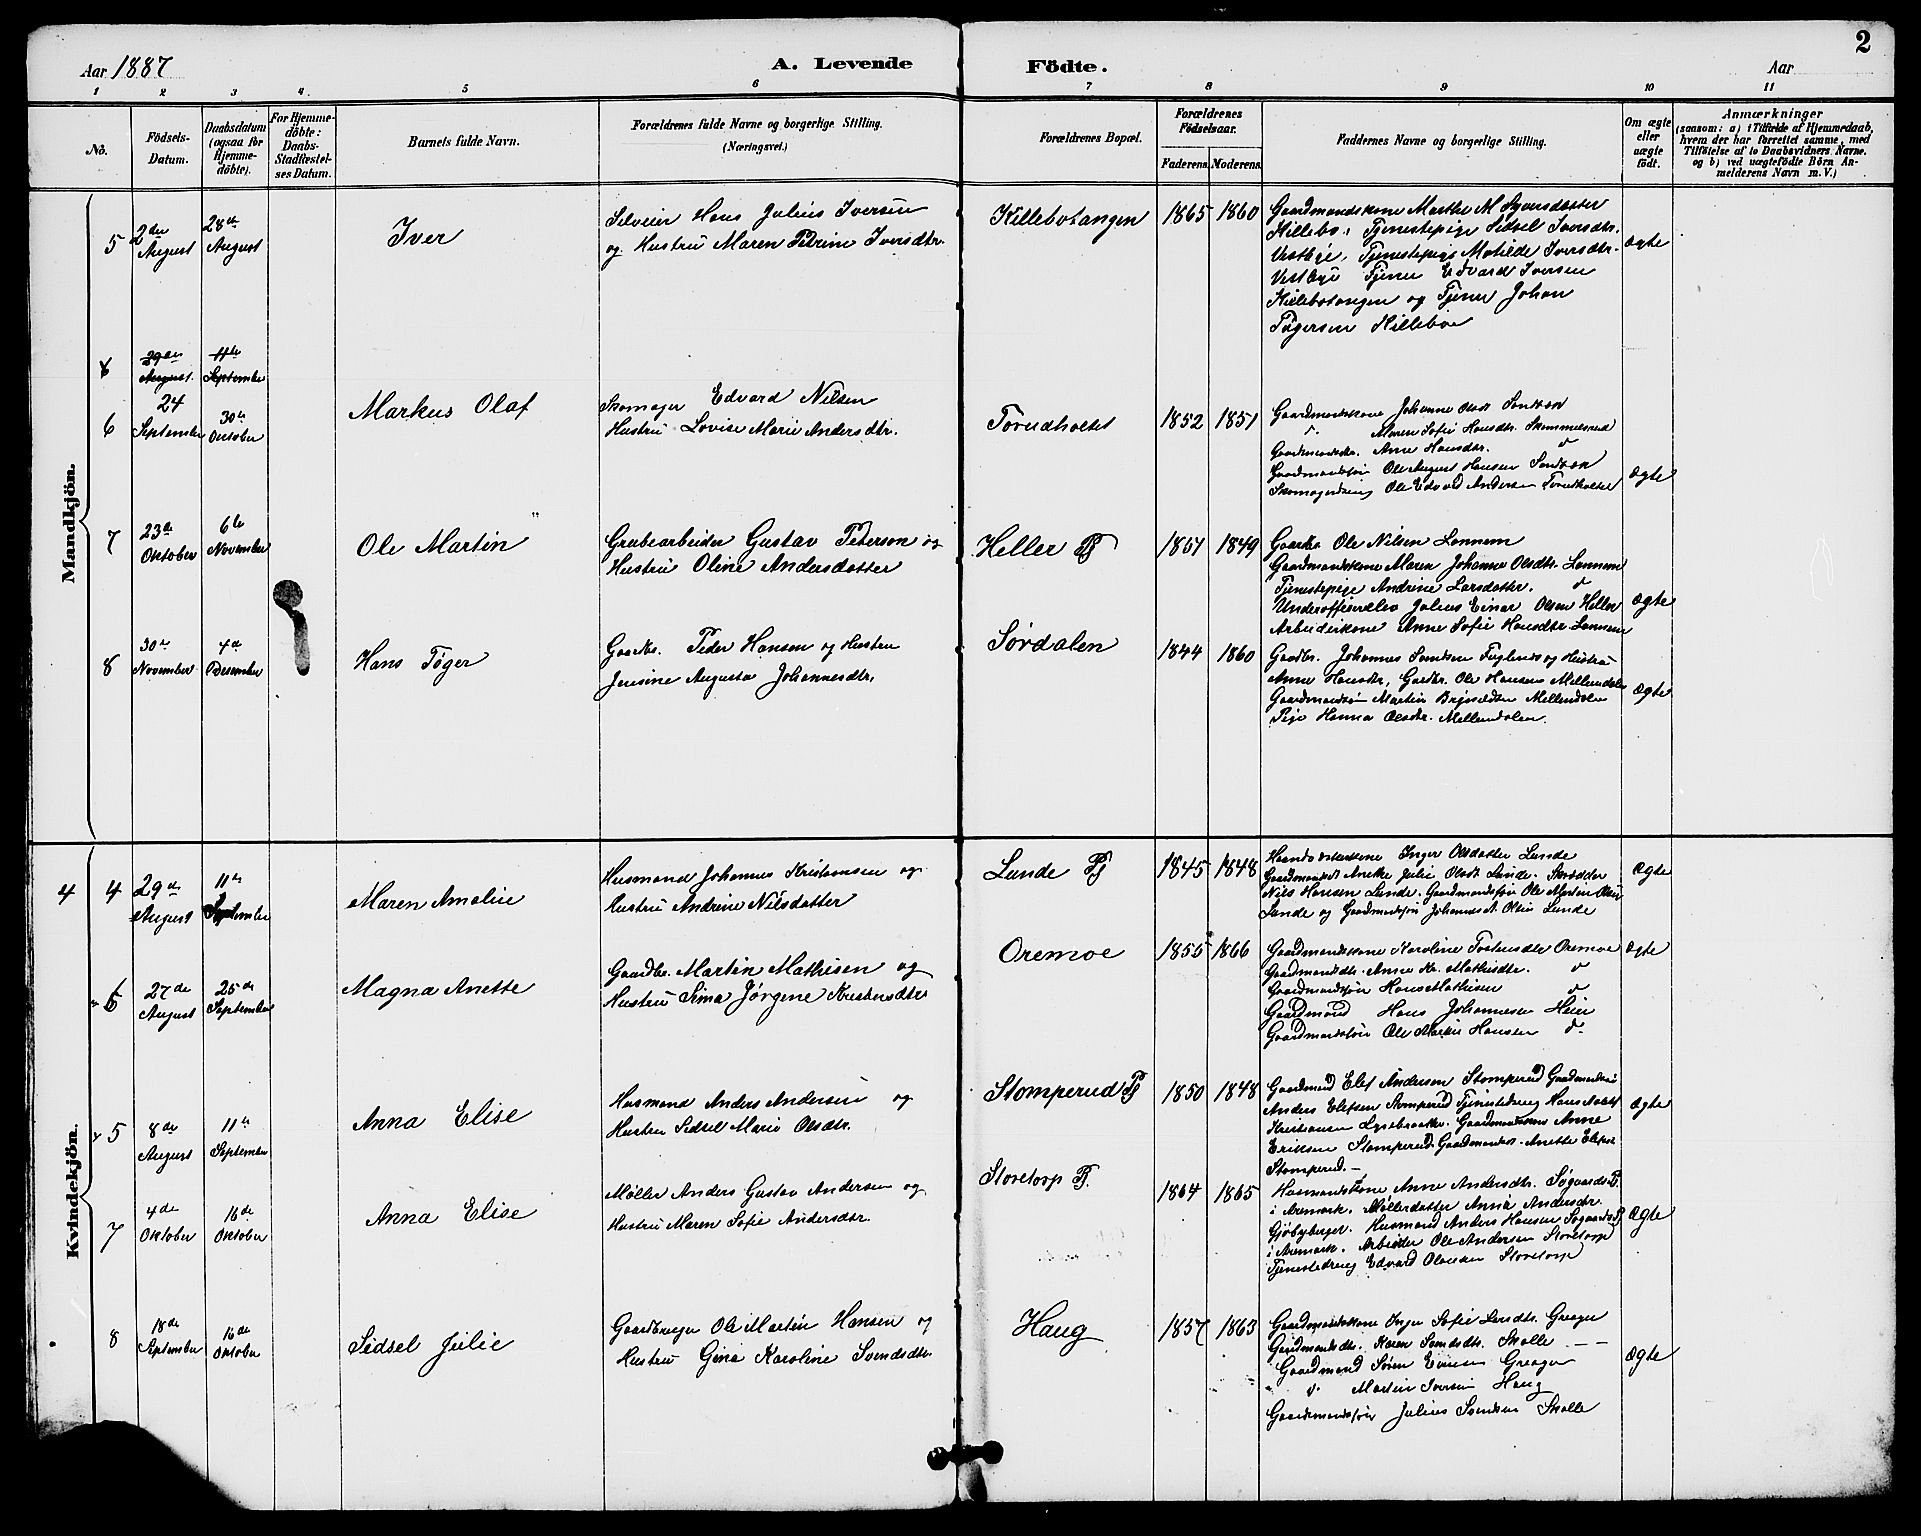 2
Aar 1887
A. Levende Födte.
Aar
1 2 3 4. 5 6 7 8 9 10 11
No.
Födsels-Datum.
Daabsdatum (ogsaa for Hjemme-döbte).
For Hjemme-döbte: Daabs-Stadfæstel-ses Datum.
Barnets fulde Navn.
Forældrenes fulde Navne og borgerlige Stilling.
(Næringsvei.)
Forældrenes Bopæl.
Forældrenes Födselsaar.
Faderens. Moderens.
Faddernes Navne og borgerlige Stilling.
Om ægte eller uægte födt.
Anmærkninger
(saasom: a) i Tilfælde af Hjemmedaab,
hvem der har forrettet samme, med
Tilföielse af to Daabsvidners Navne.
og b) ved uægtefödte Börn An-
melderens Navn m. V.)
Mandkjön.
5
2den August
28de August
Iver
Selveier Hans Julius Iversen
og Hustru Maren Petrine Iversdtr.
Killebotangen
1865 1860
Gaardmandskone Marthe M Syversdatter
Killebo, Tjenestepige Sidsel Iversdtr.
Vestbye, Tjenestepige Matilde Iversdtr.
Vestbye Tjener Edvard Iversen
Killebotangen og Tjener Johan
Tøgersen Killeboe
ægte
29de August.
11te September
6
24 September
30te Oktober
Markus Olaf
Skomager Edvard Nilsen
Hustru Lovise Marie Andersdtr.
Torudholtet
1852 1851
Gaardmandskone Johanne Olsdt
Maren Sofie Hansdtr.
Anne Hansdtr.
Ole August Hansen
Ole Edvard Andersen Torudholtet
ægte
7
23de Oktober
6te November
Ole Martin
Grubearbeider Gustav Peterson og
Hustru Oline Andersdatter
Heller Pl
1851 1849
Gaardbr. Ole Nilsen Lannem
Gaardmandskone Maren Johanne Olsdtr. Lannem
Tjenestepige Andrine Larsdatter. do
Underofficerselev Julius Einar Olsen Heller
Arbeiderkone Anne Sofie Hansdtr Lannem
ægte
8
30te November
4de Desember
Hans Tøger
Gaardbr. Peder Hansen og Hustru
Jensine Augusta Johannesdtr.
Sørdalen
1844 1860
Gaardbr. Johannes og Hustru
Anne Hansdtr, Gaardbr. Ole Hansen Mellemdalen
Gaardmandssøn Martin Mellemdalen
Pige Hanna Olsdtr. Mellemdalen.
ægte
Kvindekjön.
4 4
29de August
11te September
Maren Amalie
Husmand Johannes Kristiansen og
Hustru Andrine Nilsdatter
Lunde Pl
1845 1848
Inger Olsdatter Lunde
Julie Olsdt. Lunde. Skrædder
Nils Hansen Lunde. Gaardmandssøn Ole Martin Olsen
Lunde og Gaardmandssøn Johannes A. Olsen Lunde
ægte
6
27de August
25de September
Magna Anette
Gaardbr. Martin Mathisen og
Hustru Sina Jørgene
Oremoe
1855 1866
Gaardmandskone Karoline Oremoe
Gaardmandsdtr. Anne Mathisdtr. do
Gaardmandssøn Hans Mathisen do
Gaardmand Hans Johannesen Heier
Gaardmandssøn Ole Hansen do.
ægte
5
8de August
11te September
Anna Elise
Husmand Anders Andersen og
Hustru Sidsel Marie Olsdtr.
Stomperud Pl
1850 1848
Gaardmand Elef Andersen Stomperud
Anders Elefsen Stomperud Tjenestedreng Hans
Kristiansen Gaardmandskone Anne
Eriksen Stomperud. Anette
Stomperud.
ægte
7
4de Oktober
16de Oktober
Anna Elise
Møller Anders Gustav Andersen og
Hustru Maren Sofie Andersdtr.
Storetorp Pl.
1864 1865
Husmandskone Anne Andersdtr. Søgaards Pl.
i Aremark. Møllerdatter Anna Andersdtr.
Gjøbyberget. Husmand Anders Hansen Søgaards Pl
i Aremark. Arbeider Ole Andersen Storetorp
Tjenestedreng Edvard Olausen Storetorp
ægte
8
18de September
16de Oktober
Sidsel Julie
Gaardbruger Ole Martin Hansen og
Hustru Gina Karoline Svendsdtr.
Haug
1857 1863
Gaardmandskone Inger Sofie
Gaardmandsdtr. Karen Svendsdtr. Skolle
Gaardmand Søren
do Martin Iversen Haug
Gaardmandssøn Julius Svendsen Skolle
ægte